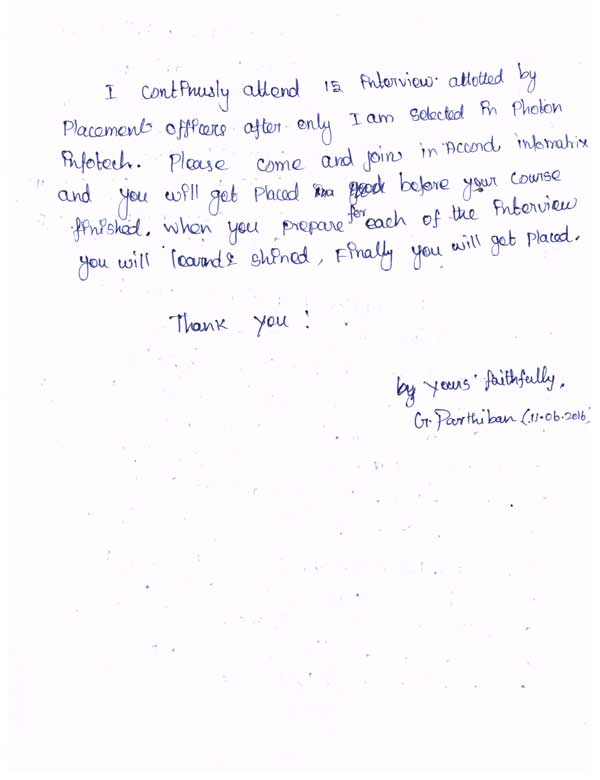 I continusly attend 12 interview. allotted by
Placement officers after only I am selected in Photon
infotech. Please come and join in Accord infomatrix
and you will get placed before your course
finished. When you prepare for each of the interview
you will learnd & shined, Finally you will get placed.
Thank you !
by yours faithfully,
G. Parthiban (11.06.2016)